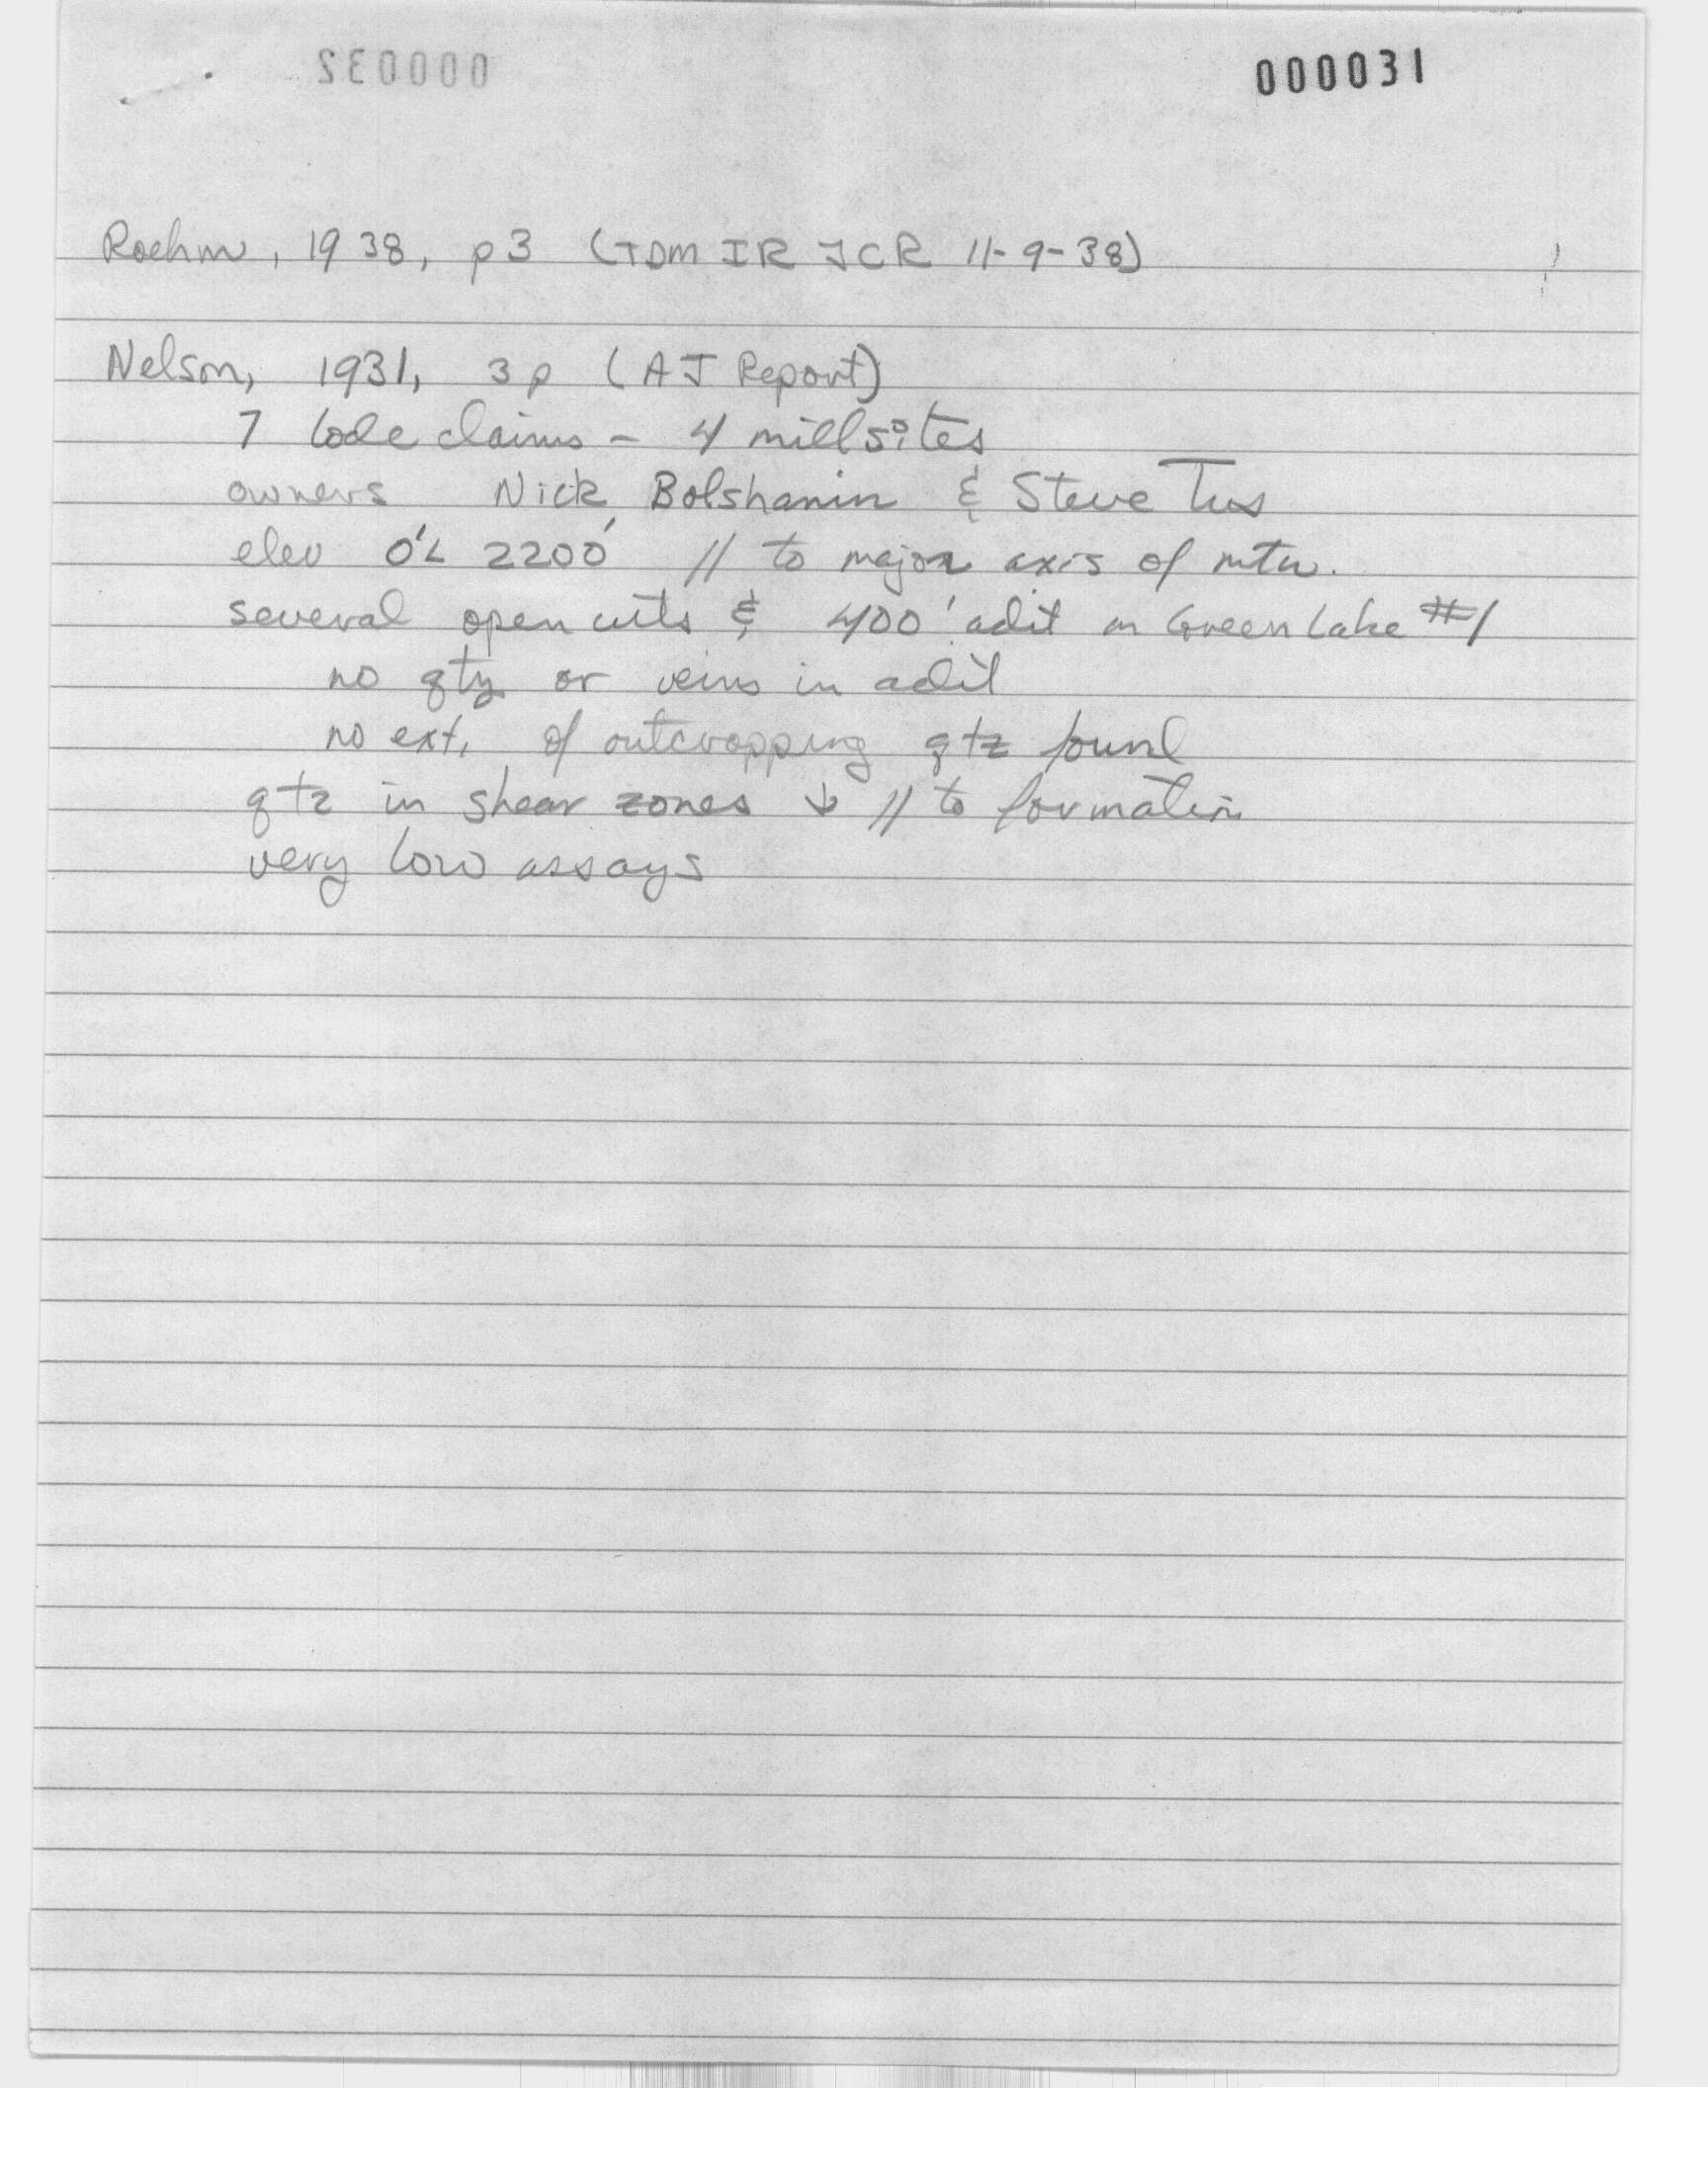 000032
000031
Roehm, 1938, p3 (TDM IR JCR 11-9-38)
Nelson, 1931, 3p (AJ Report)
7 lode claims - 4 millsites
owners Nick Bolshanin & Steve
elev 2200' // to major axis of mtn.
several open cuts & 400' adit on Green Lake #1
no qtz or veins in adit
no ext. of outcropping qtz found
qtz in shear zones // to formation
very low assays